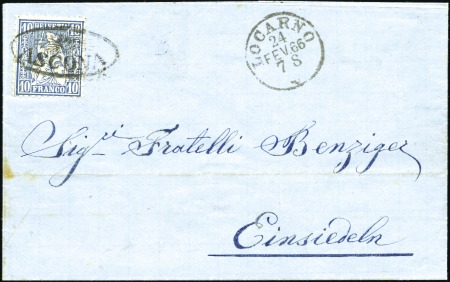 10 10
ASCONA
10 FRANCO 10
LOCARNO
24
FEV. 66
7 S
Sigri Fratelli Benziger
Einsiedeln